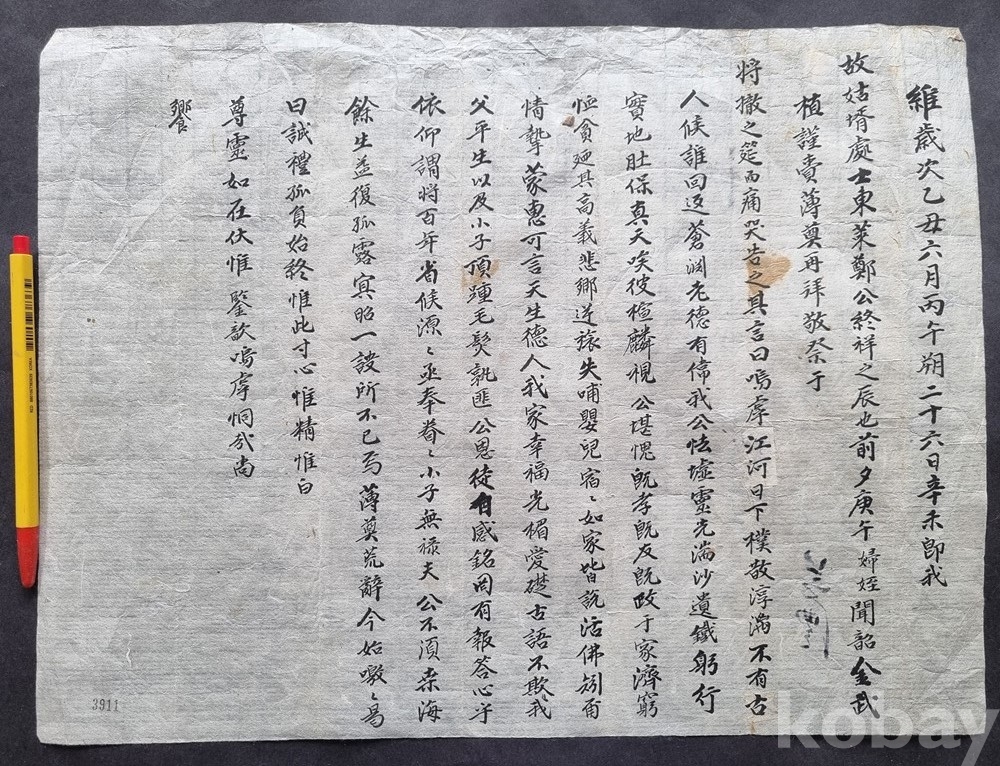 維歲次乙丑六月丙午朔二十六日辛未卽我
故姑壻處士東萊鄭公終祥之辰也前夕庚午婦姪聞韶金武
植謹賫薄奠再拜敬祭于
將撤之筵而痛哭告之其言曰嗚虖江河日下樸散淳漓不有古
人候誰回返蒼淵老德有偉我公怯墟靈光湍沙遺鐵躬行
實地肚保真天唉彼楦麟視公堪愧旣孝旣友旣政于家濟窮
恤貧廼其高義悲鄉逆旅失哺嬰兒宿宿如家皆說活佛矧甭
情摯蒙惠可言天生德人我家幸福光楣愛礎古語不欺我
父平生以及小子頂踵毛髮孰匪公恩徒自感銘罔有報答心乎
依仰謂將百年省候源源亟奉眷眷小子無祿夫公不須桑海
餘生益復孤露冥昭一訣所不已焉薄奠荒辭今始噭噭曷
曰誠禮孤負始終惟此寸心惟精惟白
尊靈如在伏惟鑒歆嗚虖恫哉尚
饗
3911
kobay